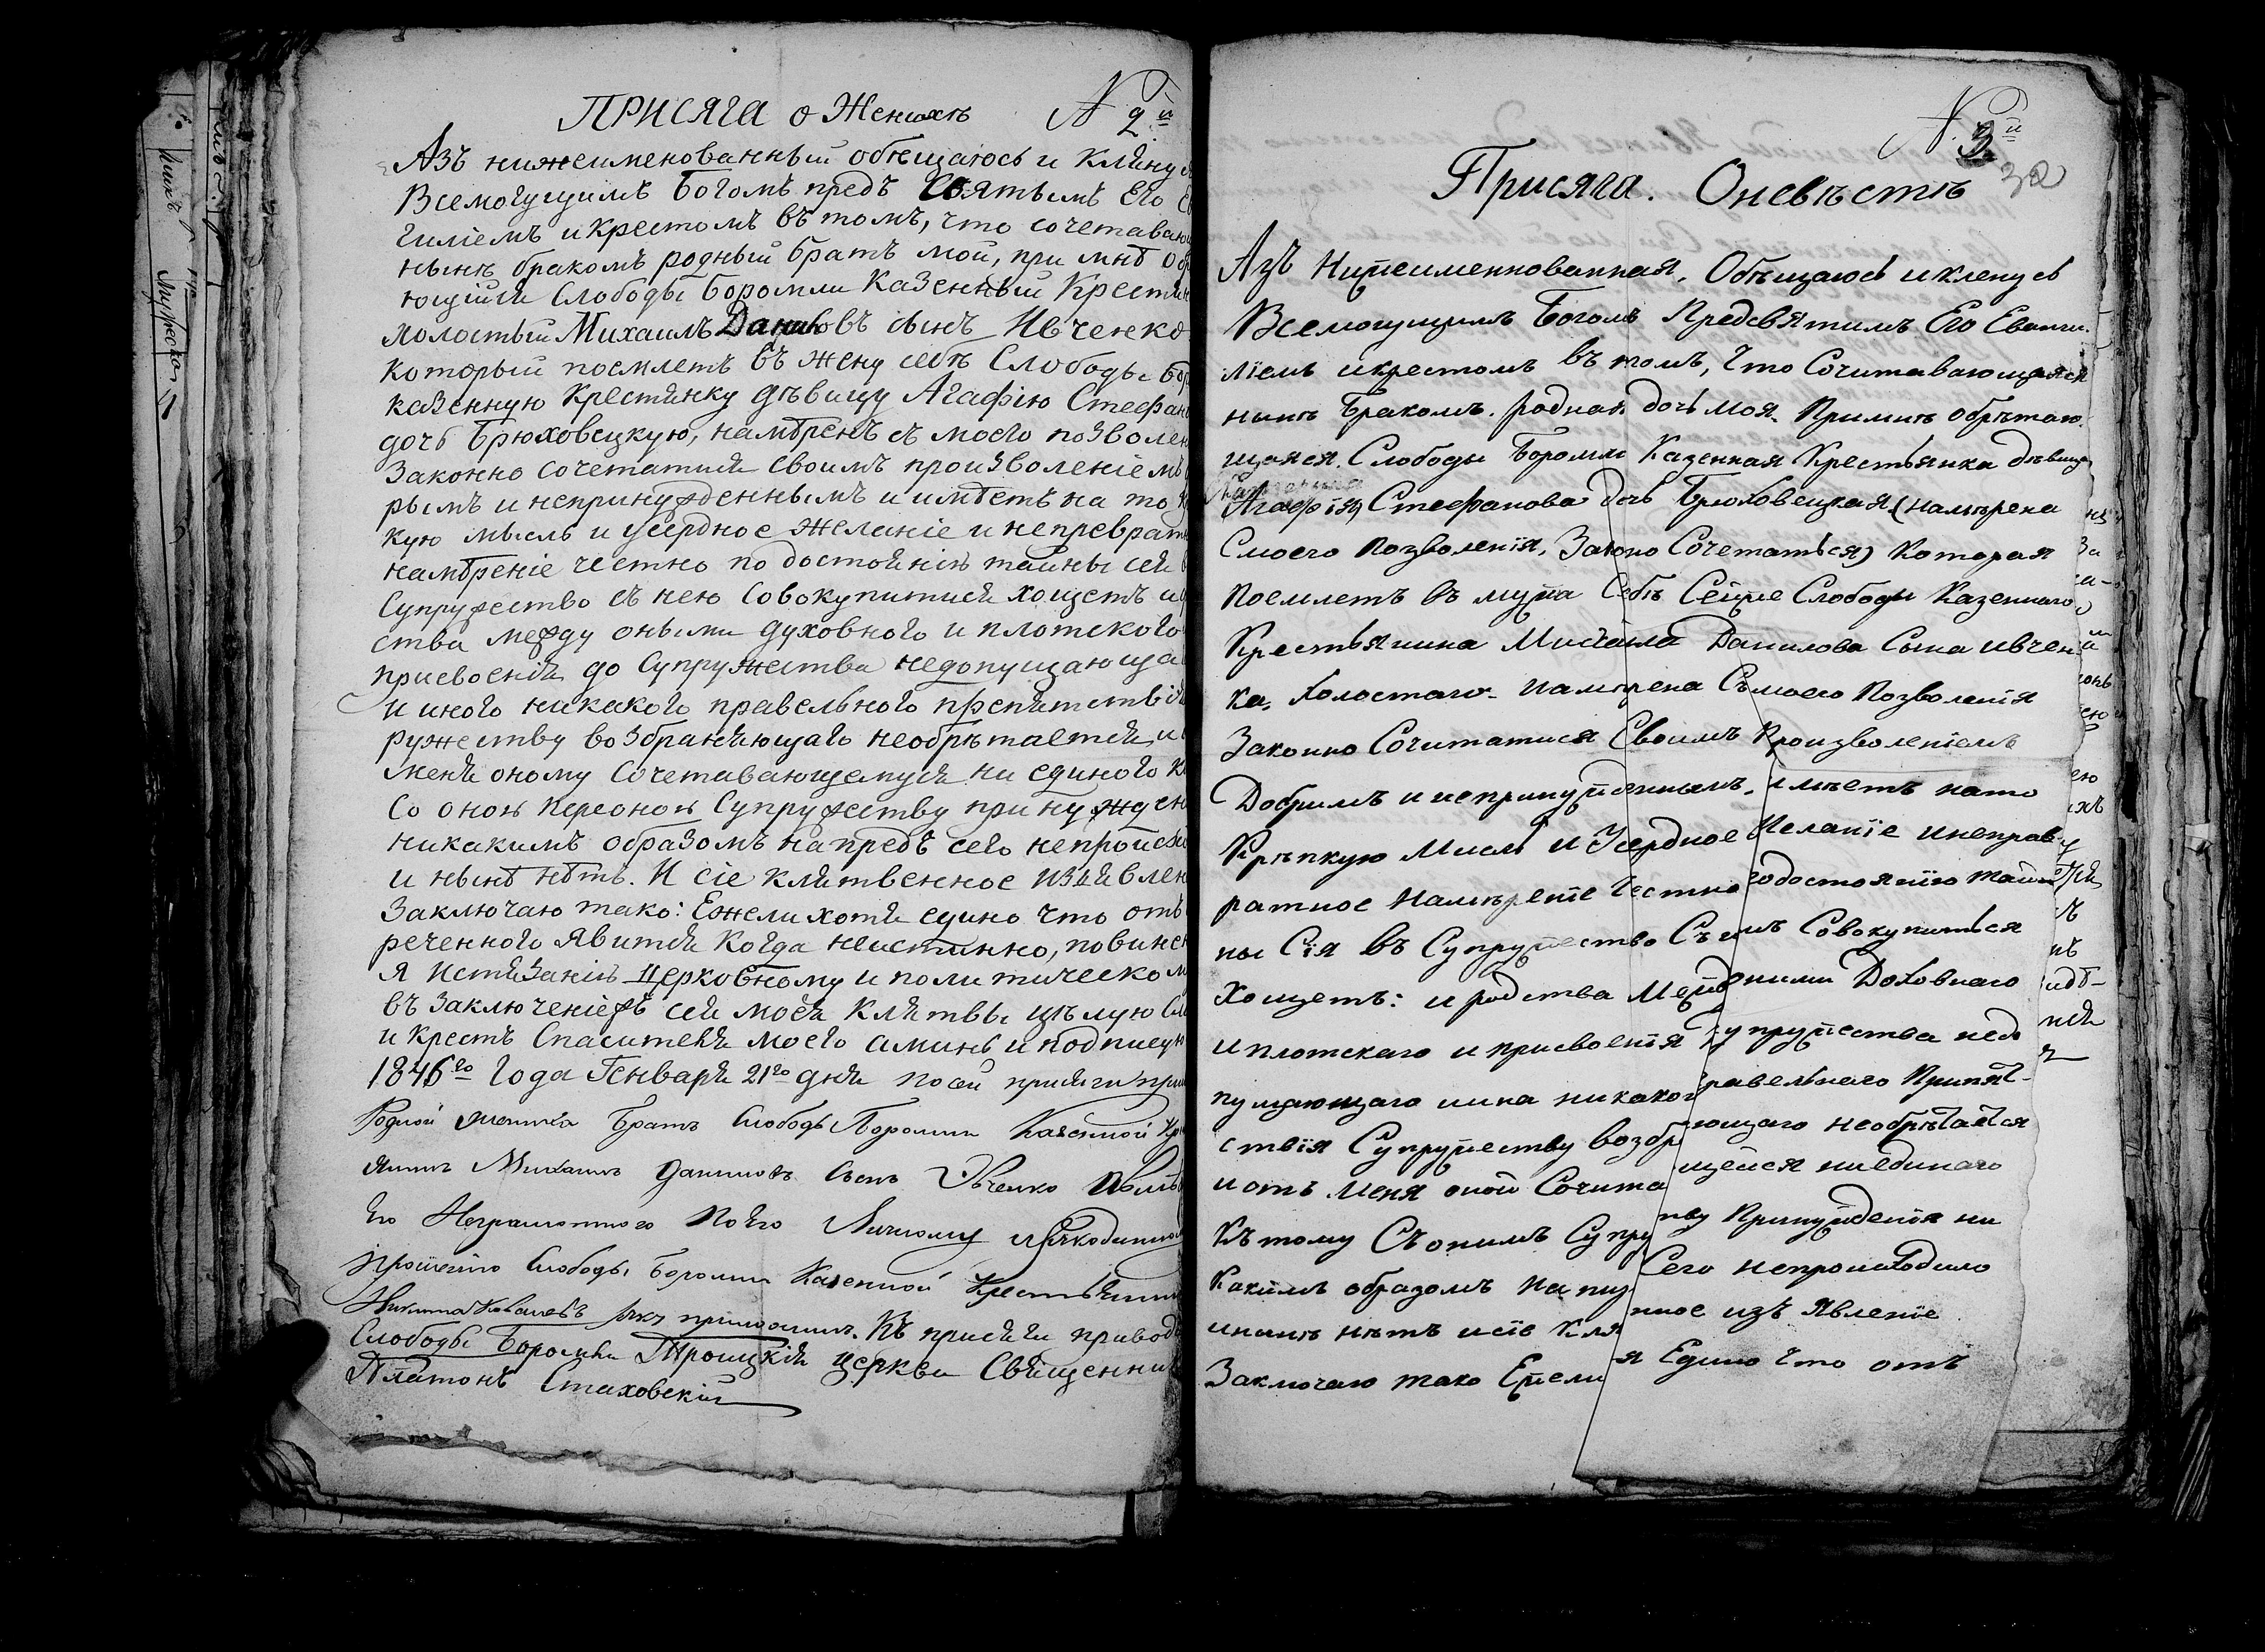 ПРИСЯГА о Женихѣ № 2й
Азъ нижеименованный обѣщаюсь и Кляну
Всемогущимъ Богомъ предъ Святымъ Его Ев
гиліемъ и крестомъ въ томъ, что сочетаваю
нынѣ бракомъ родный братъ мой, при мнѣ об
ющійся Слободы Боромли Казенный Крестян
холостый Михаилъ Даниловъ сынъ Ивченко
который поемлетъ въ жену себѣ Слободы Бор
казенную Крестянку дѣвицу Агафію Стефан
дочь Брюховецкую, намѣренъ съ моего позволен
Законно сочетатися своимъ произволеніемъ
рымъ и непринужденнымъ и имѣетъ на то
кую мысль и усердное желаніе и непреврат
намѣреніе честно по достоянію тайны сея
Супружество съ нею Совокупитися хощетъ и
ства между оными духовного и плотского
присвоенія до Супружества недопущающа
и иного никакого правельного препятствія
ружеству возбраняющаго необрѣтается, и
меня оному Сочетавающемуся ни единого к
Со оною персоною Супружеству принужден
никакимъ образомъ напредъ сего непроисхо
и нынѣ нѣтъ. И сіе клятвенное изъявлен
Заключаю тако: Ежели хотя едино что отъ
реченного явится когда неистинно, повинен
я истязанію Церковному и политическом
въ заключеніежъ сей моея клятвы цѣлую Сл
и крестъ Спасителя моего аминь и подпишу
1846го Года Генваря 21го дня по сей присяги при
Родной жениха Братъ Слободы Боромли Казенной Кр
янинъ Михаилъ Даниловъ Сынъ Ивченко
его Неграмотного По его Личному и рукоданно
прошенію Слободы Боромли Казенной Крестьянин
Никита Ковалевъ руку приложилъ. Къ присяги приводи
Слободы Боромли Троицкія Церкви Священни
Платонъ Стаховскій
№ 3й
32
Присяга. Оневѣстѣ
Азъ Нижеименнованная, Обѣщаюсь икленусь
Всемогущимъ Богомъ Предсвятимъ Его Еванги
ліемъ икрестомъ въ томъ, Что Сочитавающаяся
нынѣ Бракомъ. родная дочь моя. Примнѣ обрѣтаю
щаяся. Слободы Боромли Казенная Крестьянка дѣвица
Агафія) Стефанова дочь Брюховецкая (намѣрена
Смоего Позволенія, Законо Сочетаться) Которая
Поемлетъ въ мужа Себѣ Сейже Слободы Казеннаго
Крестьянина Михаила Данилова Сына ивчен
ка, Холостаго. намѣрена Съмоего Позволенія
Законно Сочитатися Своимъ Произволеніемъ
Добримъ и непринужденнымъ. имѣетъ нато
Крѣпкую Мисль и Усердное Желаніе инеправ
ратное Намѣреніе Честно подостоянію Тай
ны Сія въ Супружество Съ нимъ Совокупиться
Хощетъ: и родства Между ними Доховнаго
иплотскаго и присвоенія Супружества недо
пущающаго иина никаког правельнаго Припят-
ствія Супружеству возбр ющаго необрѣтается
и отъ меня оной Сочита щейся ниединаго
Къ тому Съ онимъ Супру тву Принужденія ни
Какимъ образомъ На пи Сего непроизходило
инынѣ нѣтъ исіе Кля нное изъ Явленіе
Заключаю тако Ежели я Едино Что отъ